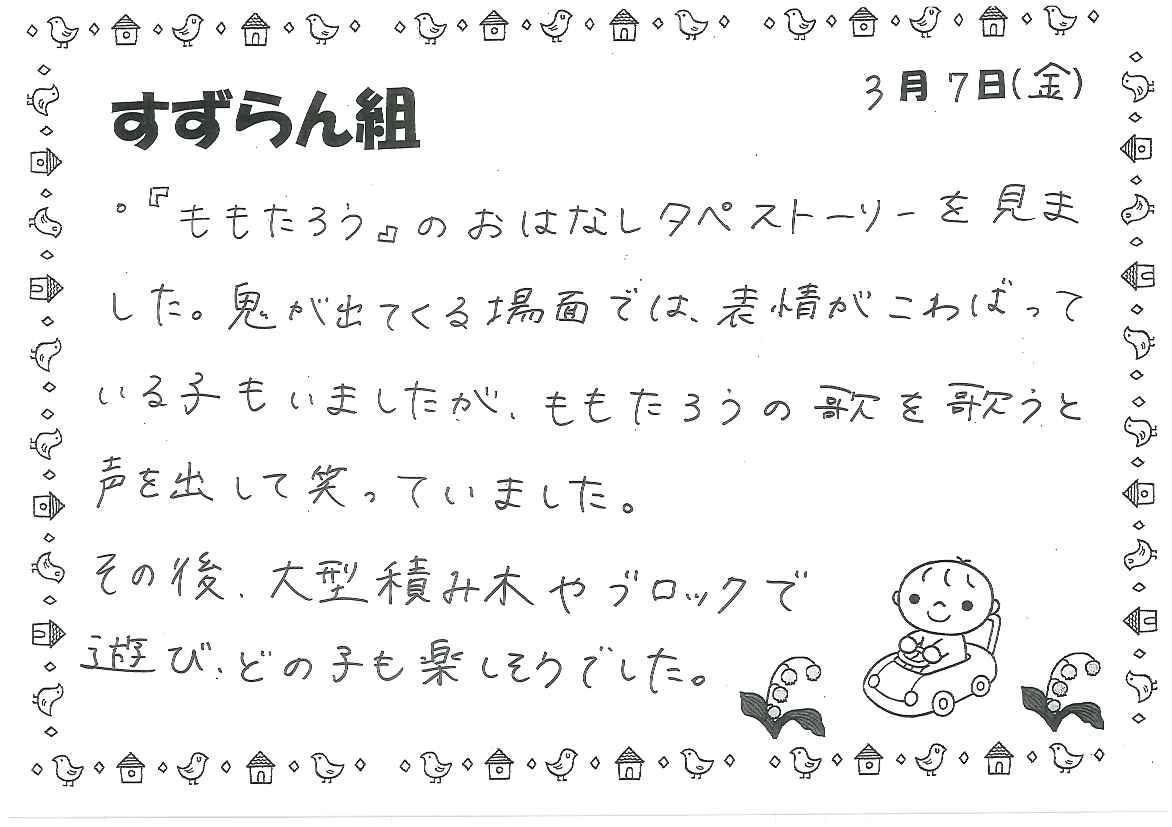 3月7日(金)
すずらん組
・『ももたろう』のおはなしタペストーリーを見ま
した。鬼が出てくる場面では、表情がこわばって
いる子もいましたが、ももたろうの歌を歌うと
声を出して笑っていました。
その後、大型積み木やブロックで
遊び、どの子も楽しそうでした。